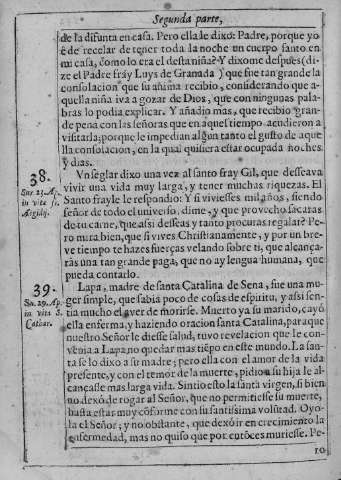 Segunda parte,
de la difunta en casa. Pero ella le dixo: Padre, porque yo
é de recelar de tener toda la noche un cuerpo santo en
mi casa, como lo era el desta niña? Y dixome despues (di-
ze el Padre fray Luys de Granada) que fue tan grande la
consolacion que su anima recibio, considerando que a-
quella niña iva a gozar de Dios, que con ningunas pala-
bras lo podia explicar. Y añadio mas, que recibio gran-
de pena con las señoras que en aquel tiempo acudieron a
visitarla; porque le impedian algun tanto el gusto de aque
lla consolacion, en la qual quisiera estar ocupada noches
y dias.
38.
Sur. 23. Ap.
in vita s.
Ægidij.
Un seglar dixo una vez al santo fray Gil, que desseava
vivir una vida muy larga, y tener muchas riquezas. El
Santo frayle le respondio: Y si viviesses mil años, siendo
señor de todo el universo, dime, y que provecho sacaras
de tu carne, que assi desseas y tanto procuras regalar? Pe-
ro mira bien, que si vives Christianamente, y por un bre-
ve tiempo te hazes fuerças velando sobre ti, que alcança-
rás una tan grande paga, que no ay lengua humana, que
pueda contarlo.
39.
Su. 29. Ap.
in vita S.
Cathar.
Lapa, madre de santa Catalina de Sena, fue una mu-
ger simple, que sabia poco de cosas de espiritu, y assi sen-
tia mucho el aver de morirse. Muerto ya su marido, cayó
ella enferma, y haziendo oracion santa Catalina, para que
nuestro Señor le diesse salud, tuvo revelacion que le con-
venia a Lapa, no quedar mas tiẽpo en este mundo. La san-
ta se lo dixo a su madre; pero ella con el amor de la vida
presente, y con el temor de la muerte, pidio a su hija le al-
cançasse mas larga vida. Sintio esto la santa virgen, si bien
no dexó de rogar al Señor, que no permitiesse su muerte,
hasta estar muy cõforme con su santissima volũtad. Oyo-
la el Señor; y no obstante, que dexó ir en crecimiento la
enfermedad, mas no quiso que por entõces muriesse. Pe-
ro